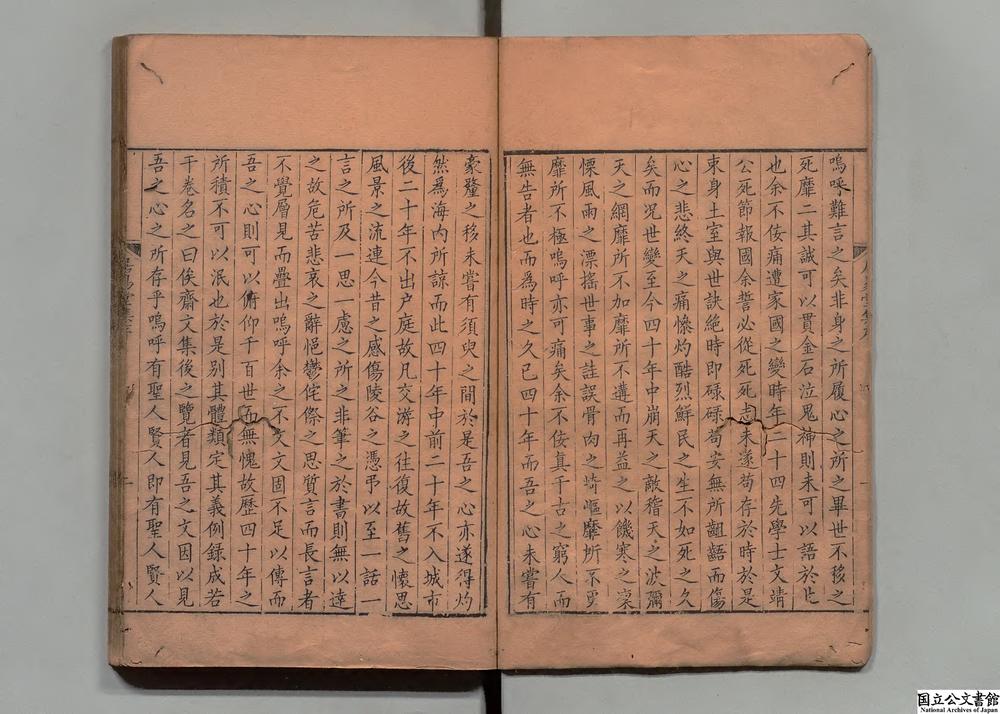 嗚呼難言之矣非身之所履心之所之畢世不移之
死靡二其誠可以貫金石泣鬼神則未可以語於此
也余不佞痛遭家國之變時年二十四先學士文靖
公死節報國余誓必從死死志未遂苟存於時於是
束身土室與世訣絕時即碌碌苟安無所齟齬而傷
心之悲終天之痛慘灼酷烈鮮民之生不如死之久
矣而況世變至今四十年中崩天之敵稽天之波彌
天之網靡所不加靡所不遘而再益之以饑寒之凜
慄風雨之漂搖世事之詿誤骨肉之崎嶇靡所不更
靡所不極嗚呼亦可痛矣余不佞真千古之窮人而
無告者也而為時之久已四十年而吾之心未嘗有
豪釐之移未嘗有須臾之間於是吾之心亦遂得灼
然爲海內所諒而此四十年中前二十年不入城市
後二十年不出户庭故凡交游之往復故舊之懷思
風景之流連今昔之感傷陵谷之憑弔以至一話一
言之所及一思一慮之所之非筆之於書則無以達
之故危苦悲哀之辭悒鬱侘傺之思質言而長言者
不覺層見而疊出嗚呼余之不文文固不足以傳而
吾之心則可以俯仰千百世而無愧故歷四十年之
所積不可以泯也於是別其體類定其義例錄成若
干卷名之曰俟齋文集後之覽者見吾之文因以見
吾之心之所存乎嗚呼有聖人賢人即有聖人賢人
国立公文書館
National Archives of Japan